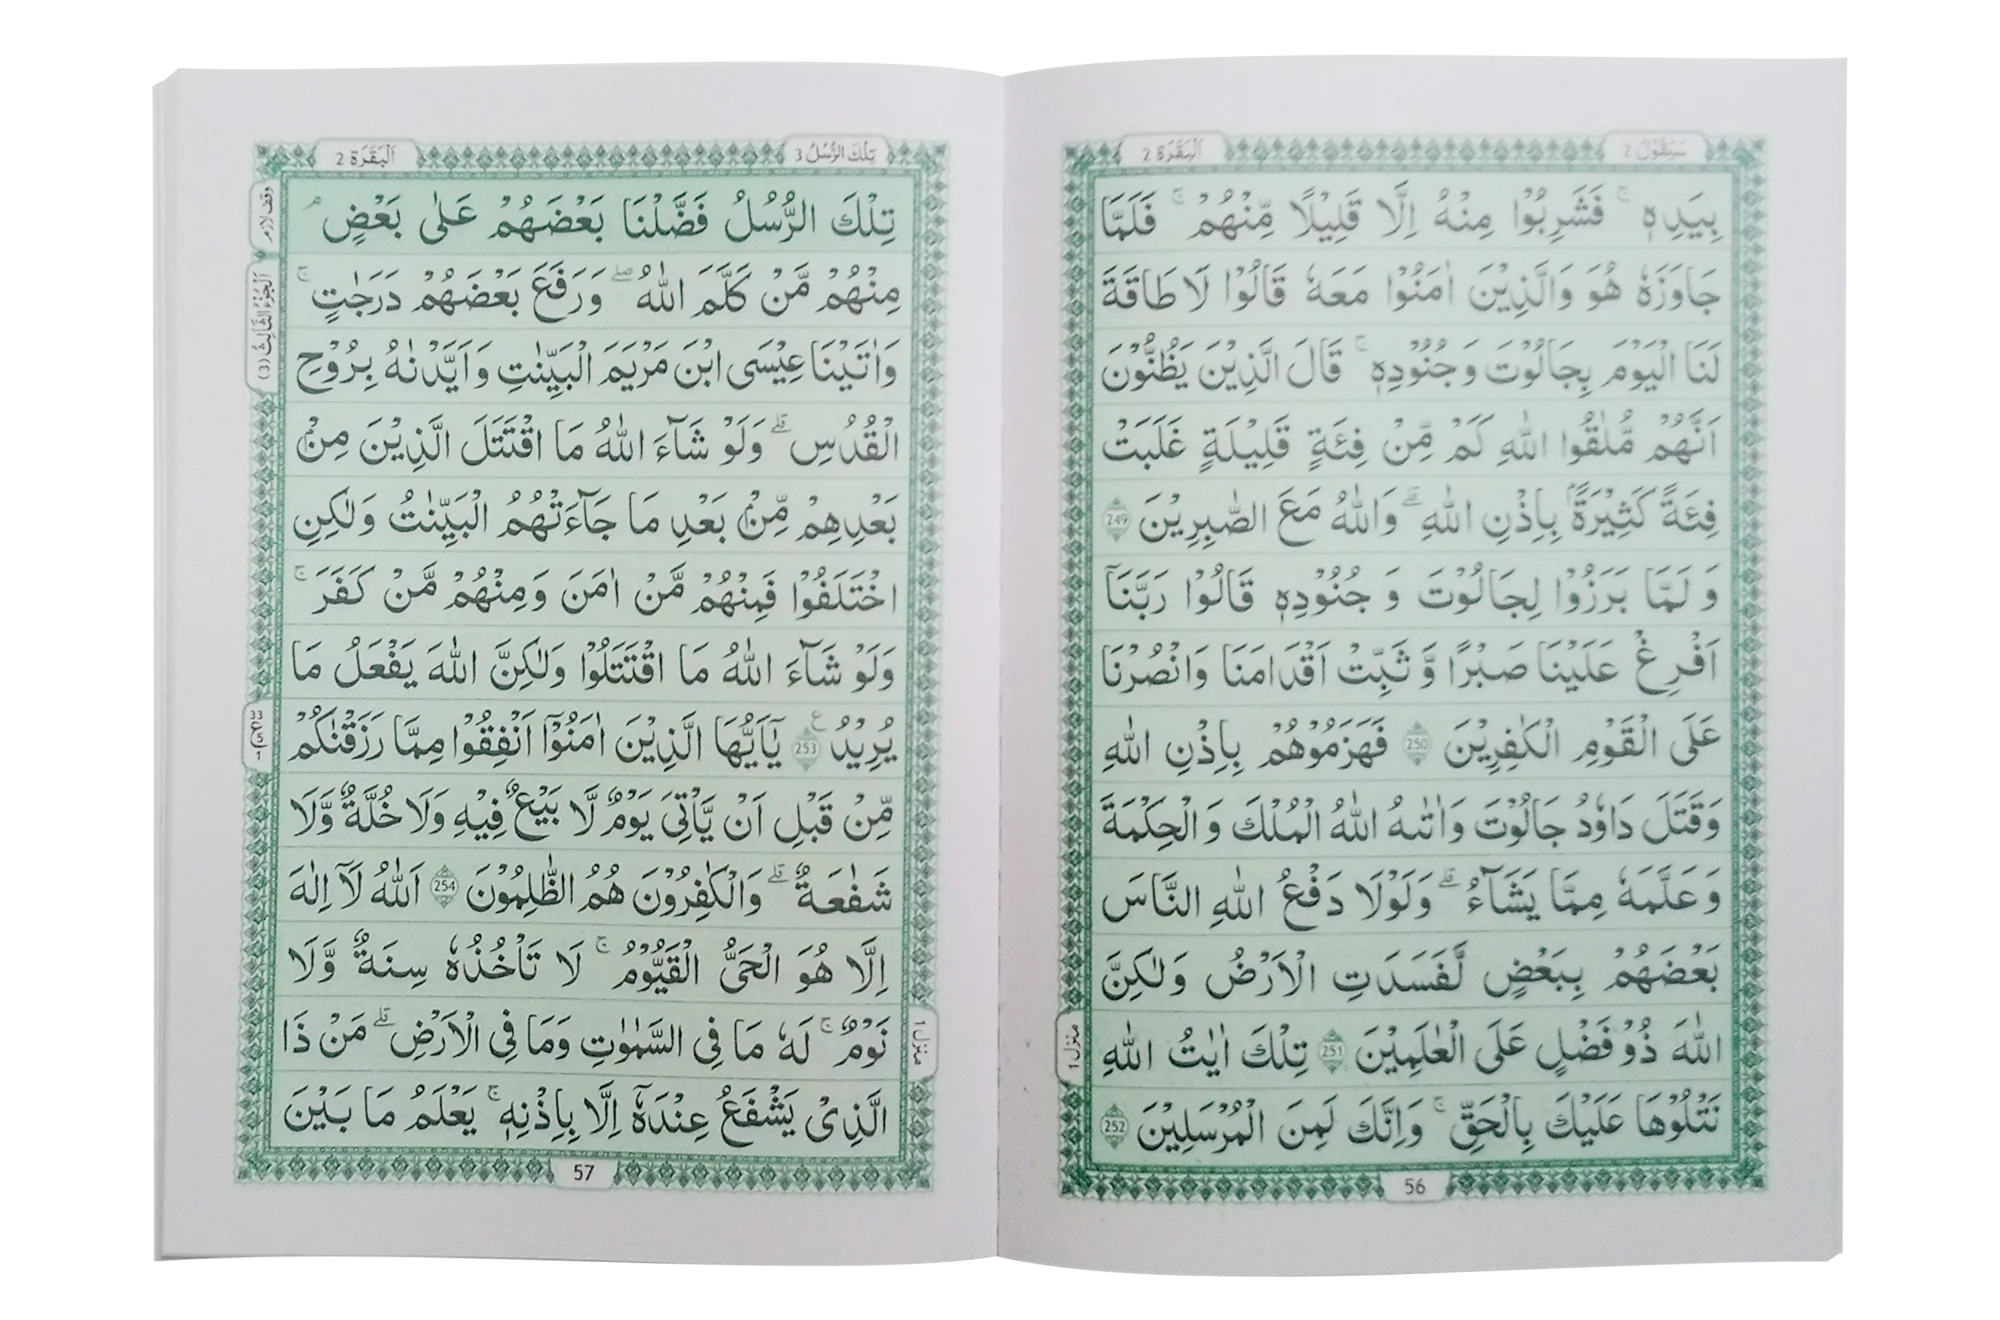 سَيَقُوْلُ 2
اَلْبَقَرَة 2
بِيَدِهٖ ۚ فَشَرِبُوْا مِنْهُ اِلَّا قَلِيْلًا مِّنْهُمْ ۚ فَلَمَّا
جَاوَزَهٗ هُوَ وَالَّذِيْنَ اٰمَنُوْا مَعَهٗ قَالُوْا لَا طَاقَةَ
لَنَا الْيَوْمَ بِجَالُوْتَ وَجُنُوْدِهٖ ۚ قَالَ الَّذِيْنَ يَظُنُّوْنَ
اَنَّهُمْ مُّلٰقُوا اللّٰهِ كَمْ مِّنْ فِئَةٍ قَلِيْلَةٍ غَلَبَتْ
فِئَةً كَثِيْرَةًۢ بِاِذْنِ اللّٰهِ ۗ وَاللّٰهُ مَعَ الصّٰبِرِيْنَ 249
وَلَمَّا بَرَزُوْا لِجَالُوْتَ وَجُنُوْدِهٖ قَالُوْا رَبَّنَآ
اَفْرِغْ عَلَيْنَا صَبْرًا وَّثَبِّتْ اَقْدَامَنَا وَانْصُرْنَا
عَلَى الْقَوْمِ الْكٰفِرِيْنَ 250 فَهَزَمُوْهُمْ بِاِذْنِ اللّٰهِ
وَقَتَلَ دَاوٗدُ جَالُوْتَ وَاٰتٰىهُ اللّٰهُ الْمُلْكَ وَالْحِكْمَةَ
وَعَلَّمَهٗ مِمَّا يَشَآءُ ۗ وَلَوْلَا دَفْعُ اللّٰهِ النَّاسَ
بَعْضَهُمْ بِبَعْضٍ لَّفَسَدَتِ الْاَرْضُ وَلٰكِنَّ
اللّٰهَ ذُوْ فَضْلٍ عَلَى الْعٰلَمِيْنَ 251 تِلْكَ اٰيٰتُ اللّٰهِ
نَتْلُوْهَا عَلَيْكَ بِالْحَقِّ ۚ وَاِنَّكَ لَمِنَ الْمُرْسَلِيْنَ 252
منزل 1
56
تِلْكَ الرُّسُلُ 3
اَلْبَقَرَة 2
تِلْكَ الرُّسُلُ فَضَّلْنَا بَعْضَهُمْ عَلٰى بَعْضٍ ۘ
مِنْهُمْ مَّنْ كَلَّمَ اللّٰهُ ۖ وَرَفَعَ بَعْضَهُمْ دَرَجٰتٍ ۚ
وَاٰتَيْنَا عِيْسَى ابْنَ مَرْيَمَ الْبَيِّنٰتِ وَاَيَّدْنٰهُ بِرُوْحِ
الْقُدُسِ ۗ وَلَوْ شَآءَ اللّٰهُ مَا اقْتَتَلَ الَّذِيْنَ مِنْۢ
بَعْدِهِمْ مِّنْۢ بَعْدِ مَا جَآءَتْهُمُ الْبَيِّنٰتُ وَلٰكِنِ
اخْتَلَفُوْا فَمِنْهُمْ مَّنْ اٰمَنَ وَمِنْهُمْ مَّنْ كَفَرَ ۚ
وَلَوْ شَآءَ اللّٰهُ مَا اقْتَتَلُوْا وَلٰكِنَّ اللّٰهَ يَفْعَلُ مَا
يُرِيْدُ 253 يٰٓاَيُّهَا الَّذِيْنَ اٰمَنُوْٓا اَنْفِقُوْا مِمَّا رَزَقْنٰكُمْ
مِّنْ قَبْلِ اَنْ يَّاْتِيَ يَوْمٌ لَّا بَيْعٌ فِيْهِ وَلَا خُلَّةٌ وَّلَا
شَفٰعَةٌ ۗ وَالْكٰفِرُوْنَ هُمُ الظّٰلِمُوْنَ 254 اَللّٰهُ لَآ اِلٰهَ
اِلَّا هُوَ الْحَيُّ الْقَيُّوْمُ ۚ لَا تَاْخُذُهٗ سِنَةٌ وَّلَا
نَوْمٌ ۚ لَهٗ مَا فِي السَّمٰوٰتِ وَمَا فِي الْاَرْضِ ۗ مَنْ ذَا
الَّذِيْ يَشْفَعُ عِنْدَهٗٓ اِلَّا بِاِذْنِهٖ ۚ يَعْلَمُ مَا بَيْنَ
وقف لازم
اَلْجُزْءُ الثَّالِثُ (3)
منزل 1
57